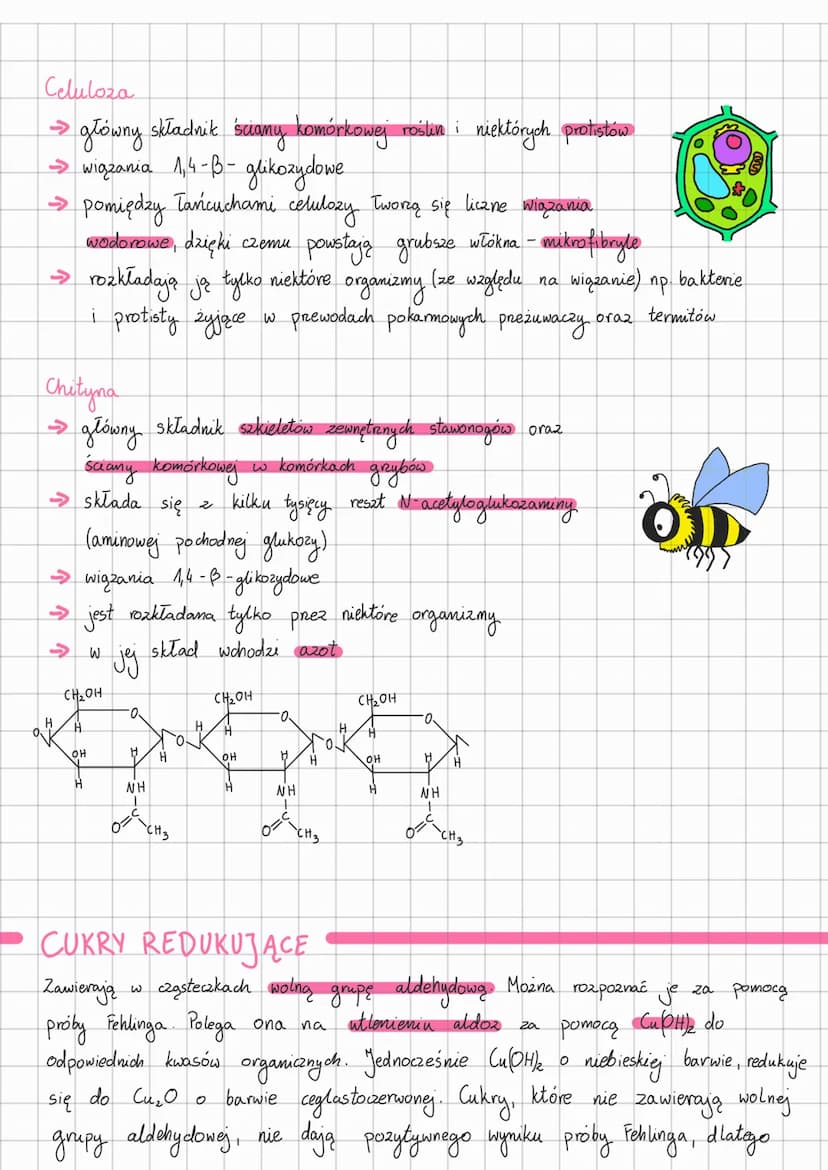 Celuloza
→ główny składnik ściany komórkowej roślin i niektórych protistów
→ wiązania 1,4-β- glikozydowe
→ pomiędzy łańcuchami celulozy tworzą się liczne wiązania
wodorowe, dzięki czemu powstają grubsze włókna - mikrofibryle
→ rozkładają ją tylko niektóre organizmy (ze względu na wiązanie) np. bakterie
i protisty żyjące w przewodach pokarmowych przeżuwaczy oraz termitów
Chityna
→ główny składnik szkieletów zewnętrznych stawonogów oraz
ściany komórkowej w komórkach grzybów
→ składa się z kilku tysięcy reszt N-acetyloglukozaminy
(aminowej pochodnej glukozy)
→ wiązania 1,4-β-glikozydowe
→ jest rozkładana tylko przez niektóre organizmy
→ w jej skład wchodzi azot
CH₂OH CH₂OH CH₂OH
O O O
O H H H H H H
O O
OH H H OH H H OH H H
H NH H NH H NH
O C CH₃ O C CH₃ O C CH₃
CUKRY REDUKUJĄCE
Zawierają w cząsteczkach wolną grupę aldehydową. Można rozpoznać je za pomocą
próby Fehlinga. Polega ona na utlenieniu aldoz za pomocą Cu(OH)₂ do
odpowiednich kwasów organicznych. Jednocześnie Cu(OH)₂ o niebieskiej barwie, redukuje
się do Cu₂O o barwie ceglastoczerwonej. Cukry, które nie zawierają wolnej
grupy aldehydowej, nie dają pozytywnego wyniku próby Fehlinga, dlatego